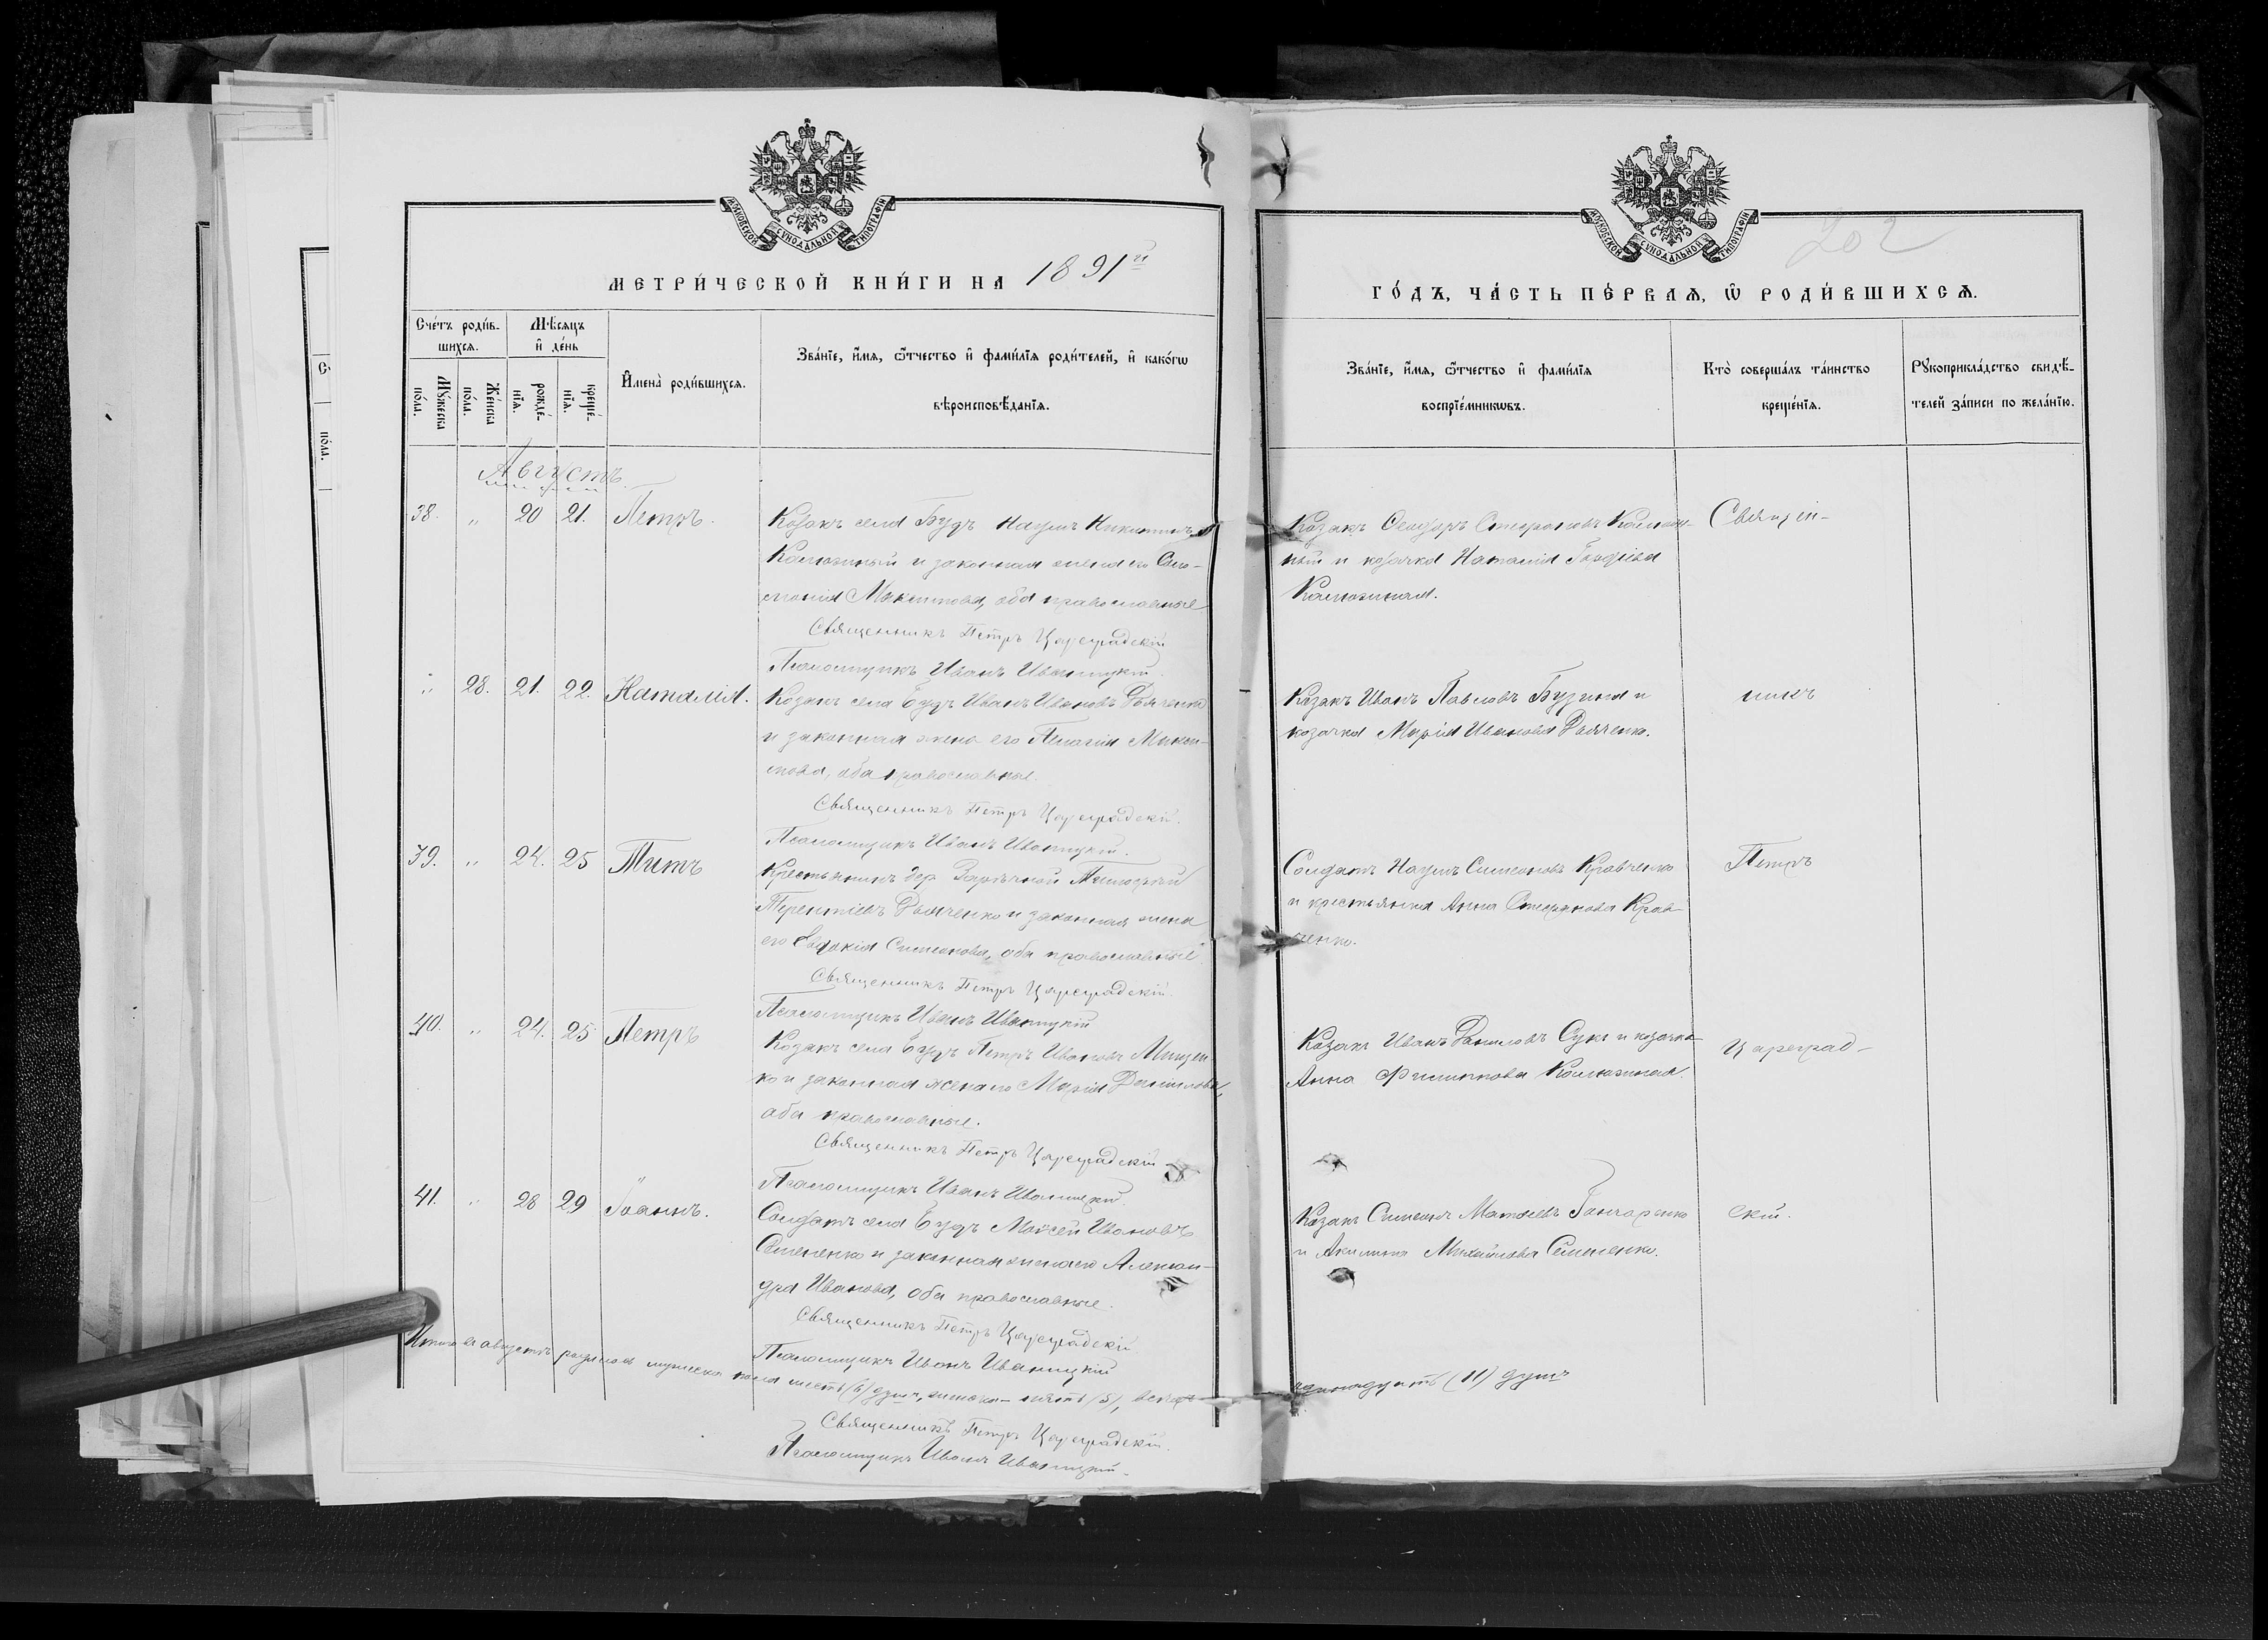 МОСКОВСКОЙ СУНОДАЛЬНОЙ ТИПОГРАФІИ
МЕТРИ́ЧЕСКОЙ КНИ́ГИ НА 1891й
Сче́тъ роди́в-
шихся.
Мѣсяцъ
и҆ де́нь
Мꙋ́жеска
по́ла.
Же́нска
по́ла.
рожде́-
нїѧ.
креще́-
нїѧ.
И҆мена̀ роди́вшихсѧ.
Зва́нїе, и҆́мѧ, ѻ҆́тчество и҆ фами́лїѧ роди́телей, и҆ како́гѡ
вѣроисповѣ́данїѧ.
Августъ
38. „ 20 21. Петръ.
Козакъ села Будъ Наумъ Никитинъ
Калюжный и законная жена его Соло-
монія Максимова, оба православные
Священникъ Петръ Цареградскій
Псаломщикъ Иванъ Иваницкій.
„ 28. 21. 22. Наталія.
Козакъ села Будъ Иванъ Ивановъ Дьяченко
и законная жена его Пелагія
оба православные.
Священникъ Петръ Цареградскій.
Псаломщикъ Иванъ Иваницкій.
39. „ 24. 25 Титъ
Крестьянинъ дер. Заречной Тимофей
Терентіевъ Дьяченко и законная жена
его Евдокія Симеонова, оба православные
Священникъ Петръ Цареградскій.
Псаломщикъ Иванъ Иваницкій
40. „ 24. 25 Петръ
Козакъ села Будъ Петръ Ивановъ Мищен-
ко и законная жена его Марія Даніилова,
оба православные.
Священникъ Петръ Цареградскій
Псаломщикъ Иванъ Иваницкій
41. „ 28 29 Іоаннъ.
Солдатъ села Будъ Моисей Ивановъ
Семененко и законная жена его Алексан-
дра Иванова, оба православные.
Священникъ Петръ Цареградскій.
Псаломщикъ Иванъ Иваницкій
Итого въ августѣ родилось мужеска пола шесть (6) душъ, женска – пять (5), всего
Священникъ Петръ Цареградскій.
Псаломщикъ Иванъ Иваницкій.
МОСКОВСКОЙ СУНОДАЛЬНОЙ ТИПОГРАФІИ
202
ГО́ДЪ, ЧА́СТЬ ПЕ́РВАѦ, Ѡ҆ РОДИ́ВШИХСѦ.
Зва́нїе, и҆́мѧ, ѻ҆́тчество и҆ фами́лїѧ
воспрїе́мникѡвъ.
Кто̀ соверша́лъ та́инство
креще́нїѧ.
Рꙋкоприкла́дство свидѣ́-
телей за́писи по жела́нїю.
Козакъ Стефановъ Калюж-
ный и козачка Наталія
Калюжная.
Священ-
Козакъ Иванъ Павловъ Бузина и
козачка Марія Иванова Дьяченко.
никъ
Солдатъ Наумъ Симеоновъ Кравченко
и крестьянка Анна Стефанова Крав-
ченко.
Петръ
Козакъ Иванъ Даниловъ Сукъ и козачка
Анна Филиппова Калюжная.
Цареград-
Козакъ Симеонъ Матѳеевъ Гончаренко
и Акилина Михайлова Семененко.
скій.
одиннадцать (11) душъ